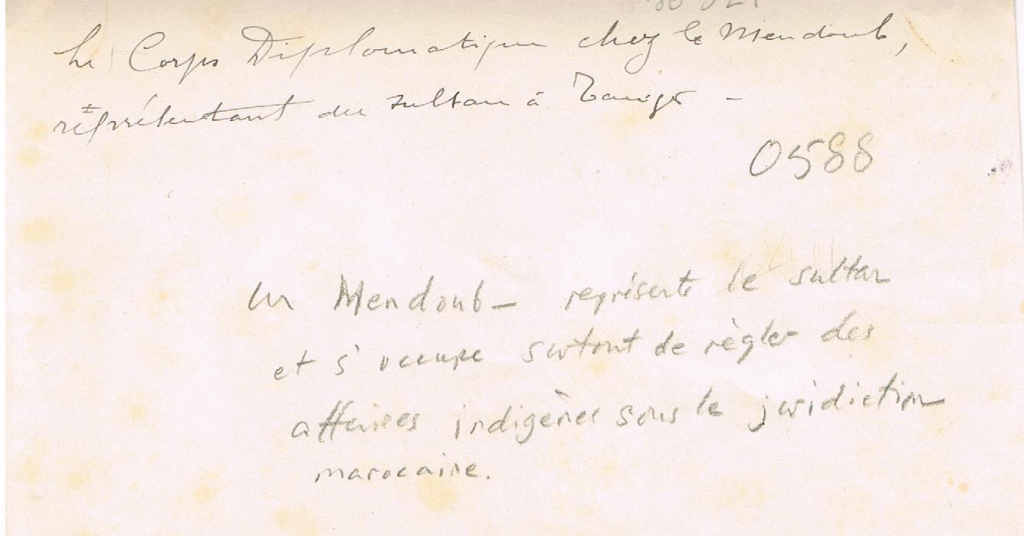 Le Corps Diplomatique chez le Mendoub,
représentant du sultan à Tanger -
0588
un Mendoub - représente le sultan
et s'occupe surtout de règler des
affaires indigènes sous le juridiction
marocaine.